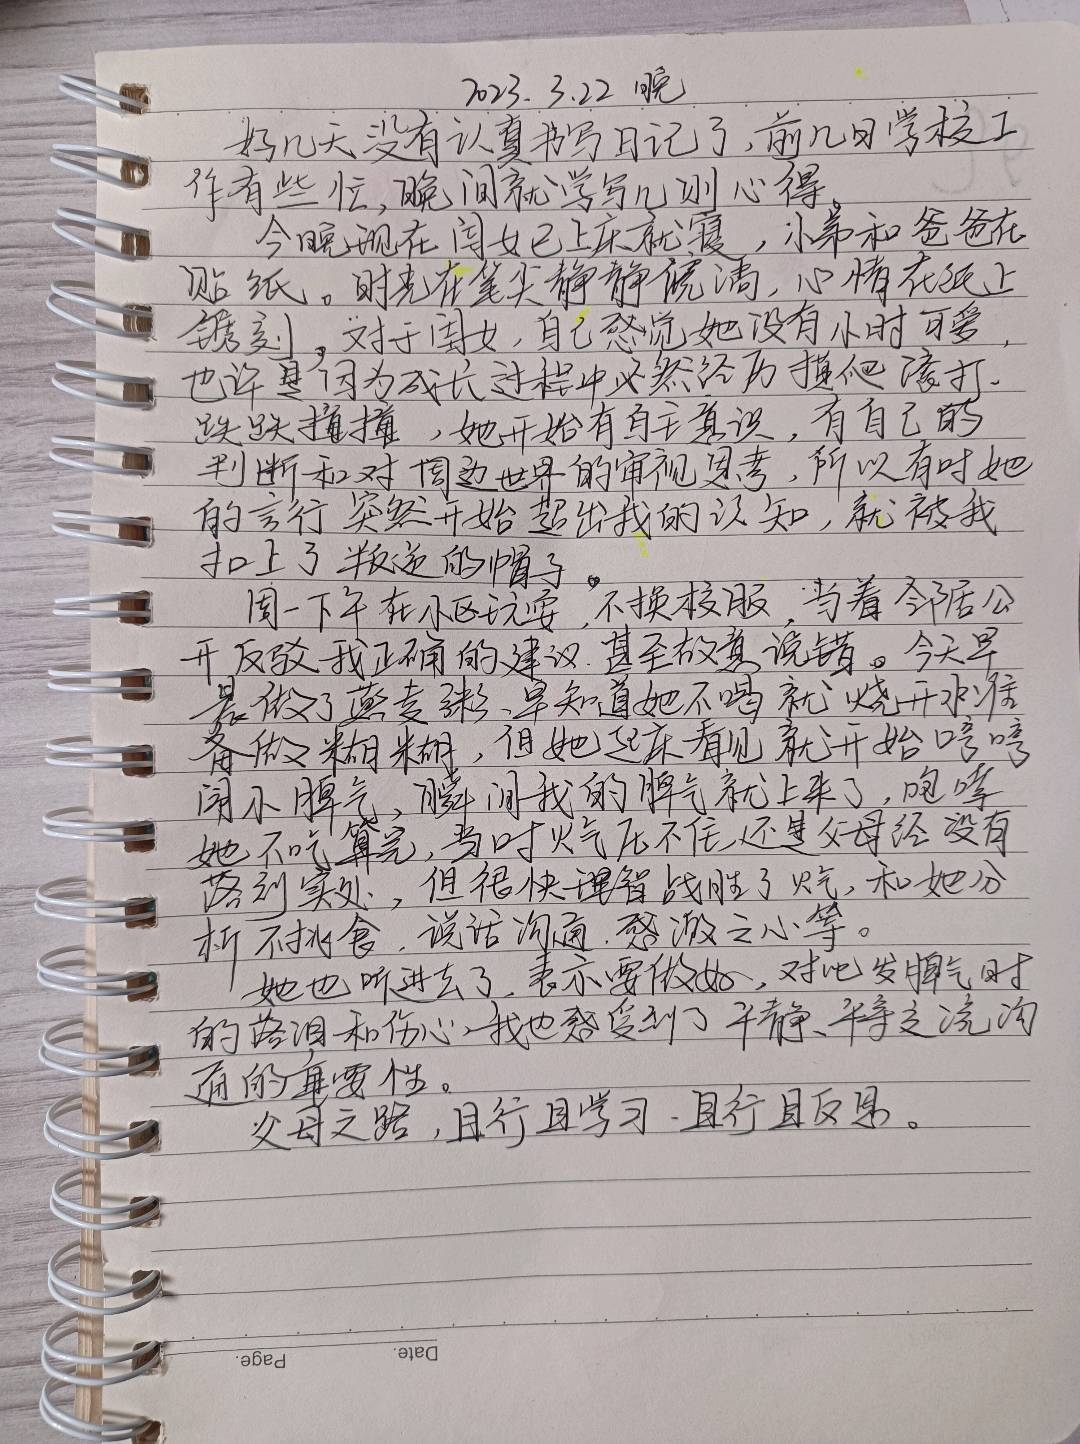 2023.3.22 晚
好几天没有认真书写日记了,前几日学校工
作有些忙,晚间就学写几则心得。
今晚现在闺女已上床就寝,小弟和爸爸在
贴纸。时光在笔尖静静流淌,心情在纸上
镌刻。对于闺女,自己感觉她没有小时可爱,
也许是因为成长过程中必然经历摸爬滚打、
跌跌撞撞,她开始有自主意识,有自己的
判断和对周边世界的审视思考,所以有时她
的言行突然开始超出我的认知,就被我
扣上了叛逆的帽子。
周一下午在小区玩耍,不换校服,当着邻居公
开反驳我正确的建议.甚至故意说错。今天早
晨做了燕麦粥、早知道她不喝就烧开水准
备做糊糊,但她起床看见就开始哼哼
闹小脾气,瞬间我的脾气就上来了,咆哮
她不吃算完,当时火气压不住,还是父母经没有
落到实处,但很快理智战胜了火气,和她分
析不挑食、说话沟通、感激之心等。
她也听进去了,表示要做好,对她发脾气时
的落泪和伤心,我也感受到了平静、平等交流沟
通的重要性。
父母之路,且行且学习.且行且反思。
Date.
Page.